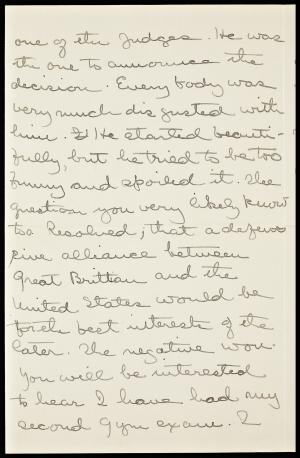 one of the Judges. He was
the one to announce the
decision. Every body was
very much disgusted with
him. He started beauti-
fully, but he tried to be too
funny and spoiled it. The
question you very likely know
too Resolved; that a defens
sive alliance between
Great Brittian and the
United States would be
for the best interests of the
later. The negative won.
You will be interested
to hear I have had my
second Gym exam. I